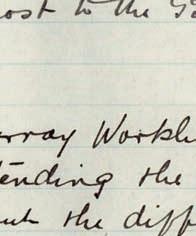 ost to the
rray Workh
tending the
ut the diff